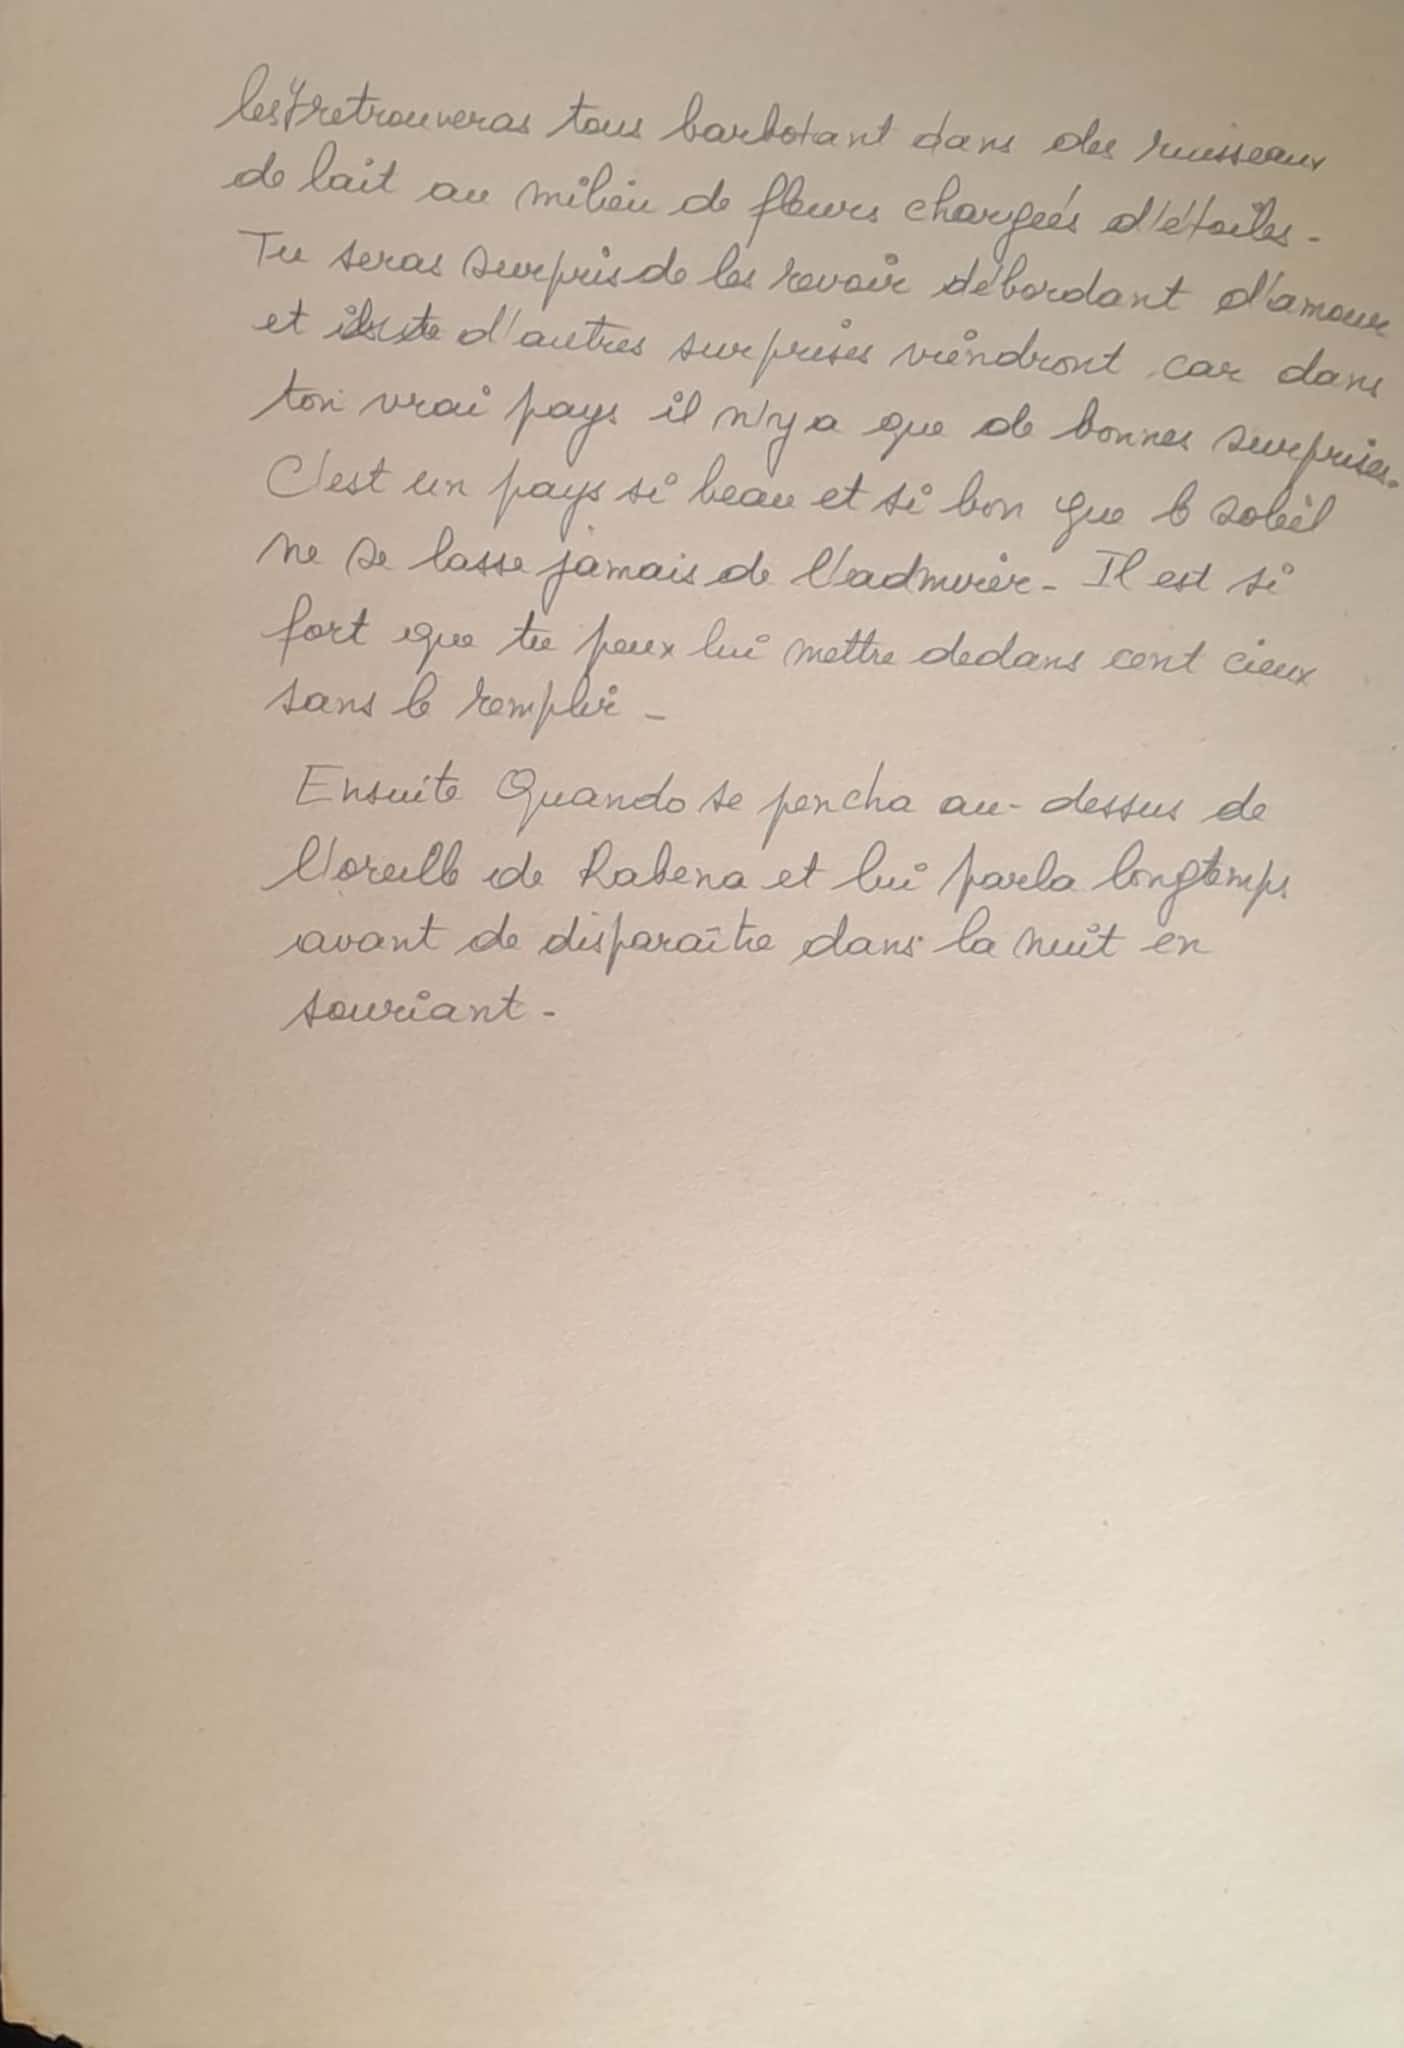 les y retrouveras tous barbotant dans des ruisseaux
de lait au milieu de fleurs chargées d'étoiles -
Tu seras surpris de les revoir débordant d'amour
et d'autres surprises viendront car dans
ton vrai pays il n'y a que de bonnes surprises.
C'est un pays si beau et si bon que le soleil
ne se lasse jamais de l'admirer - Il est si
fort que tu peux lui mettre dedans cent cieux
sans le remplir -
Ensuite Quando se pencha au-dessus de
l'oreille de Rabena et lui parla longtemps
avant de disparaître dans la nuit en
souriant -